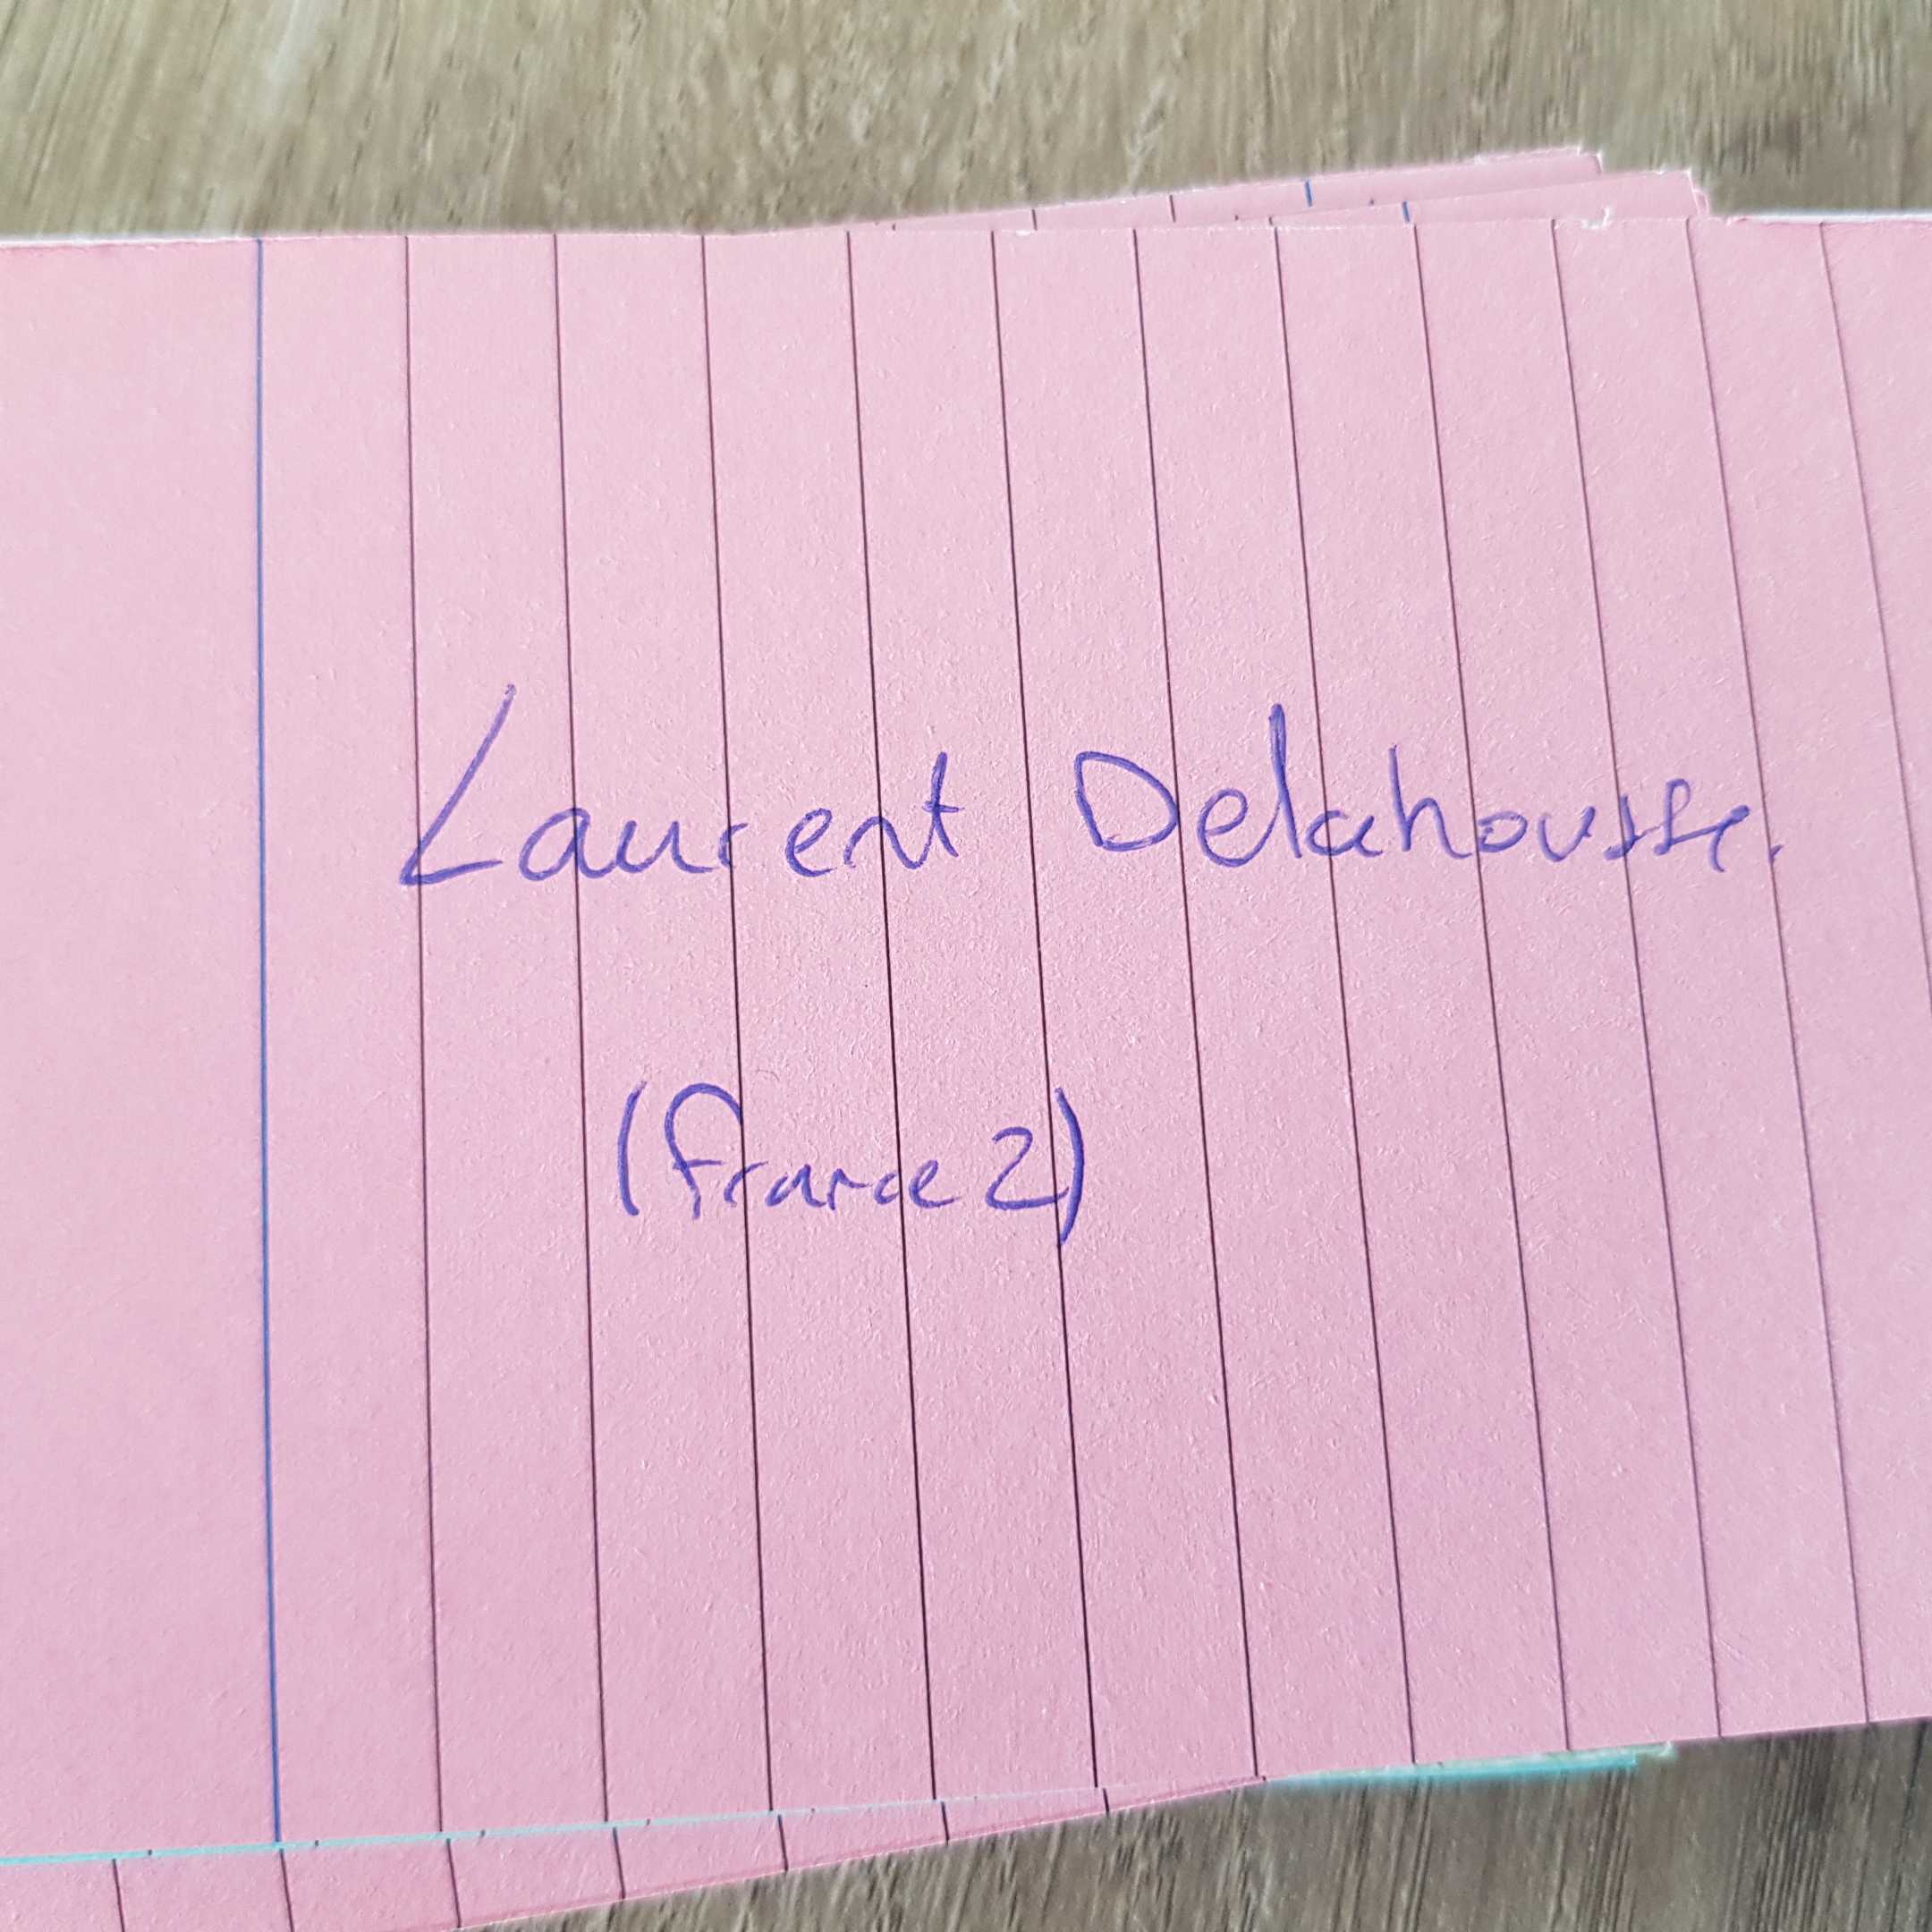 Laurent Delahousse.
(france 2)